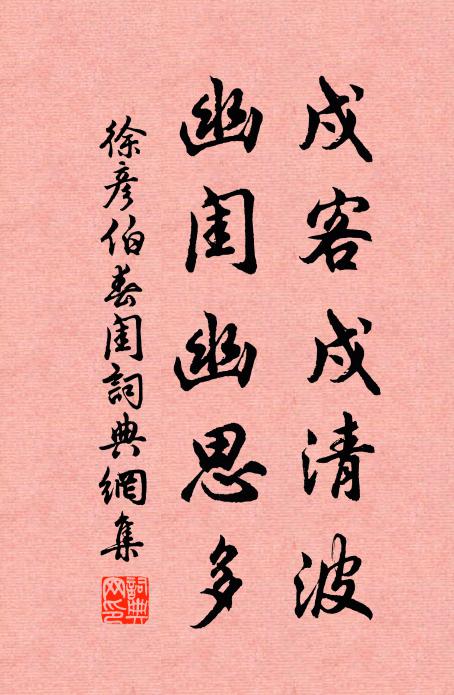 戍客戍清波
幽闺幽思多
徐彦伯春闺詞典網集
詞典网印